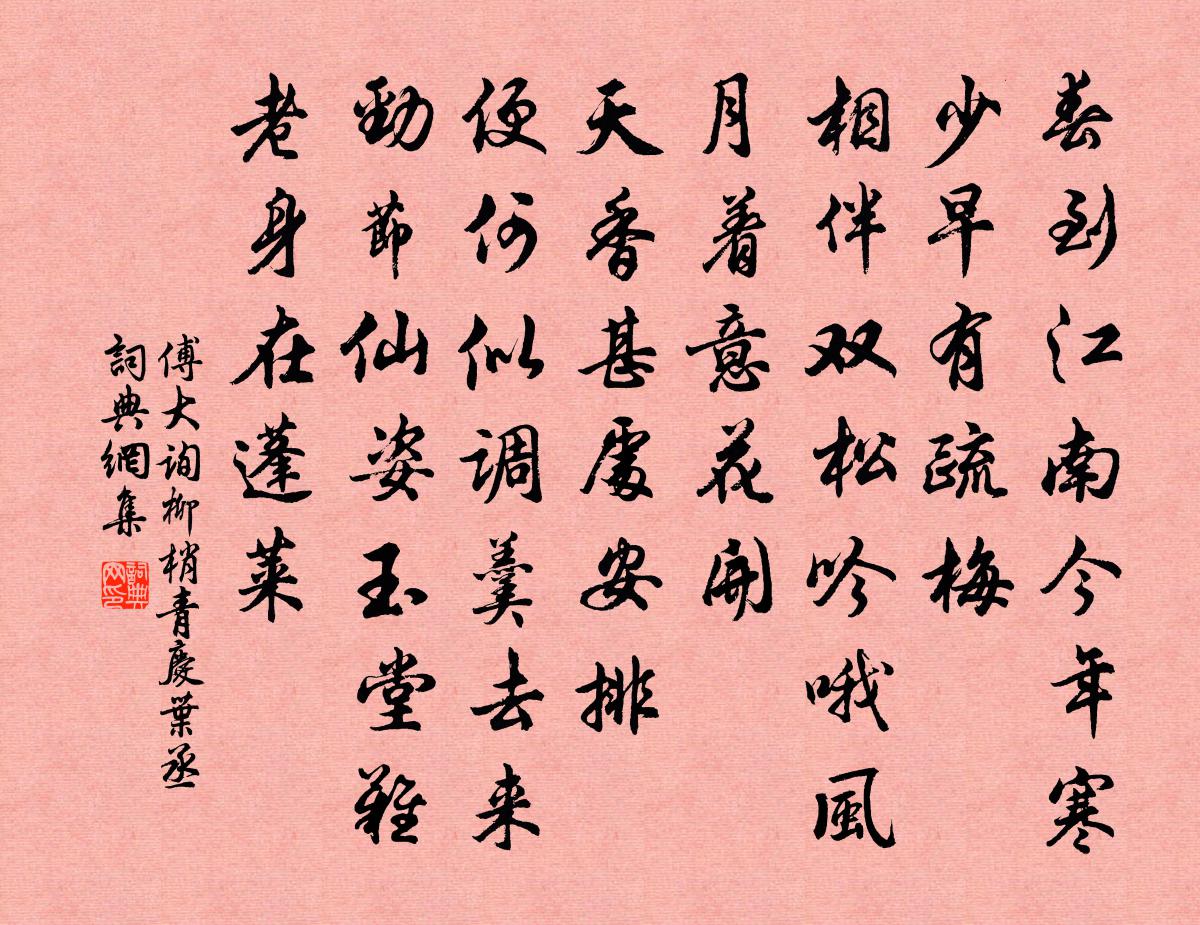 春到江南今年寒
少早有疏梅
相伴双松吟哦風
月着意花開
天香甚處安排
便何似調羹去来
勁節仙姿玉堂難
老身在蓬萊
傅大詢柳梢青慶葉丞
詞典網集
詞典网印